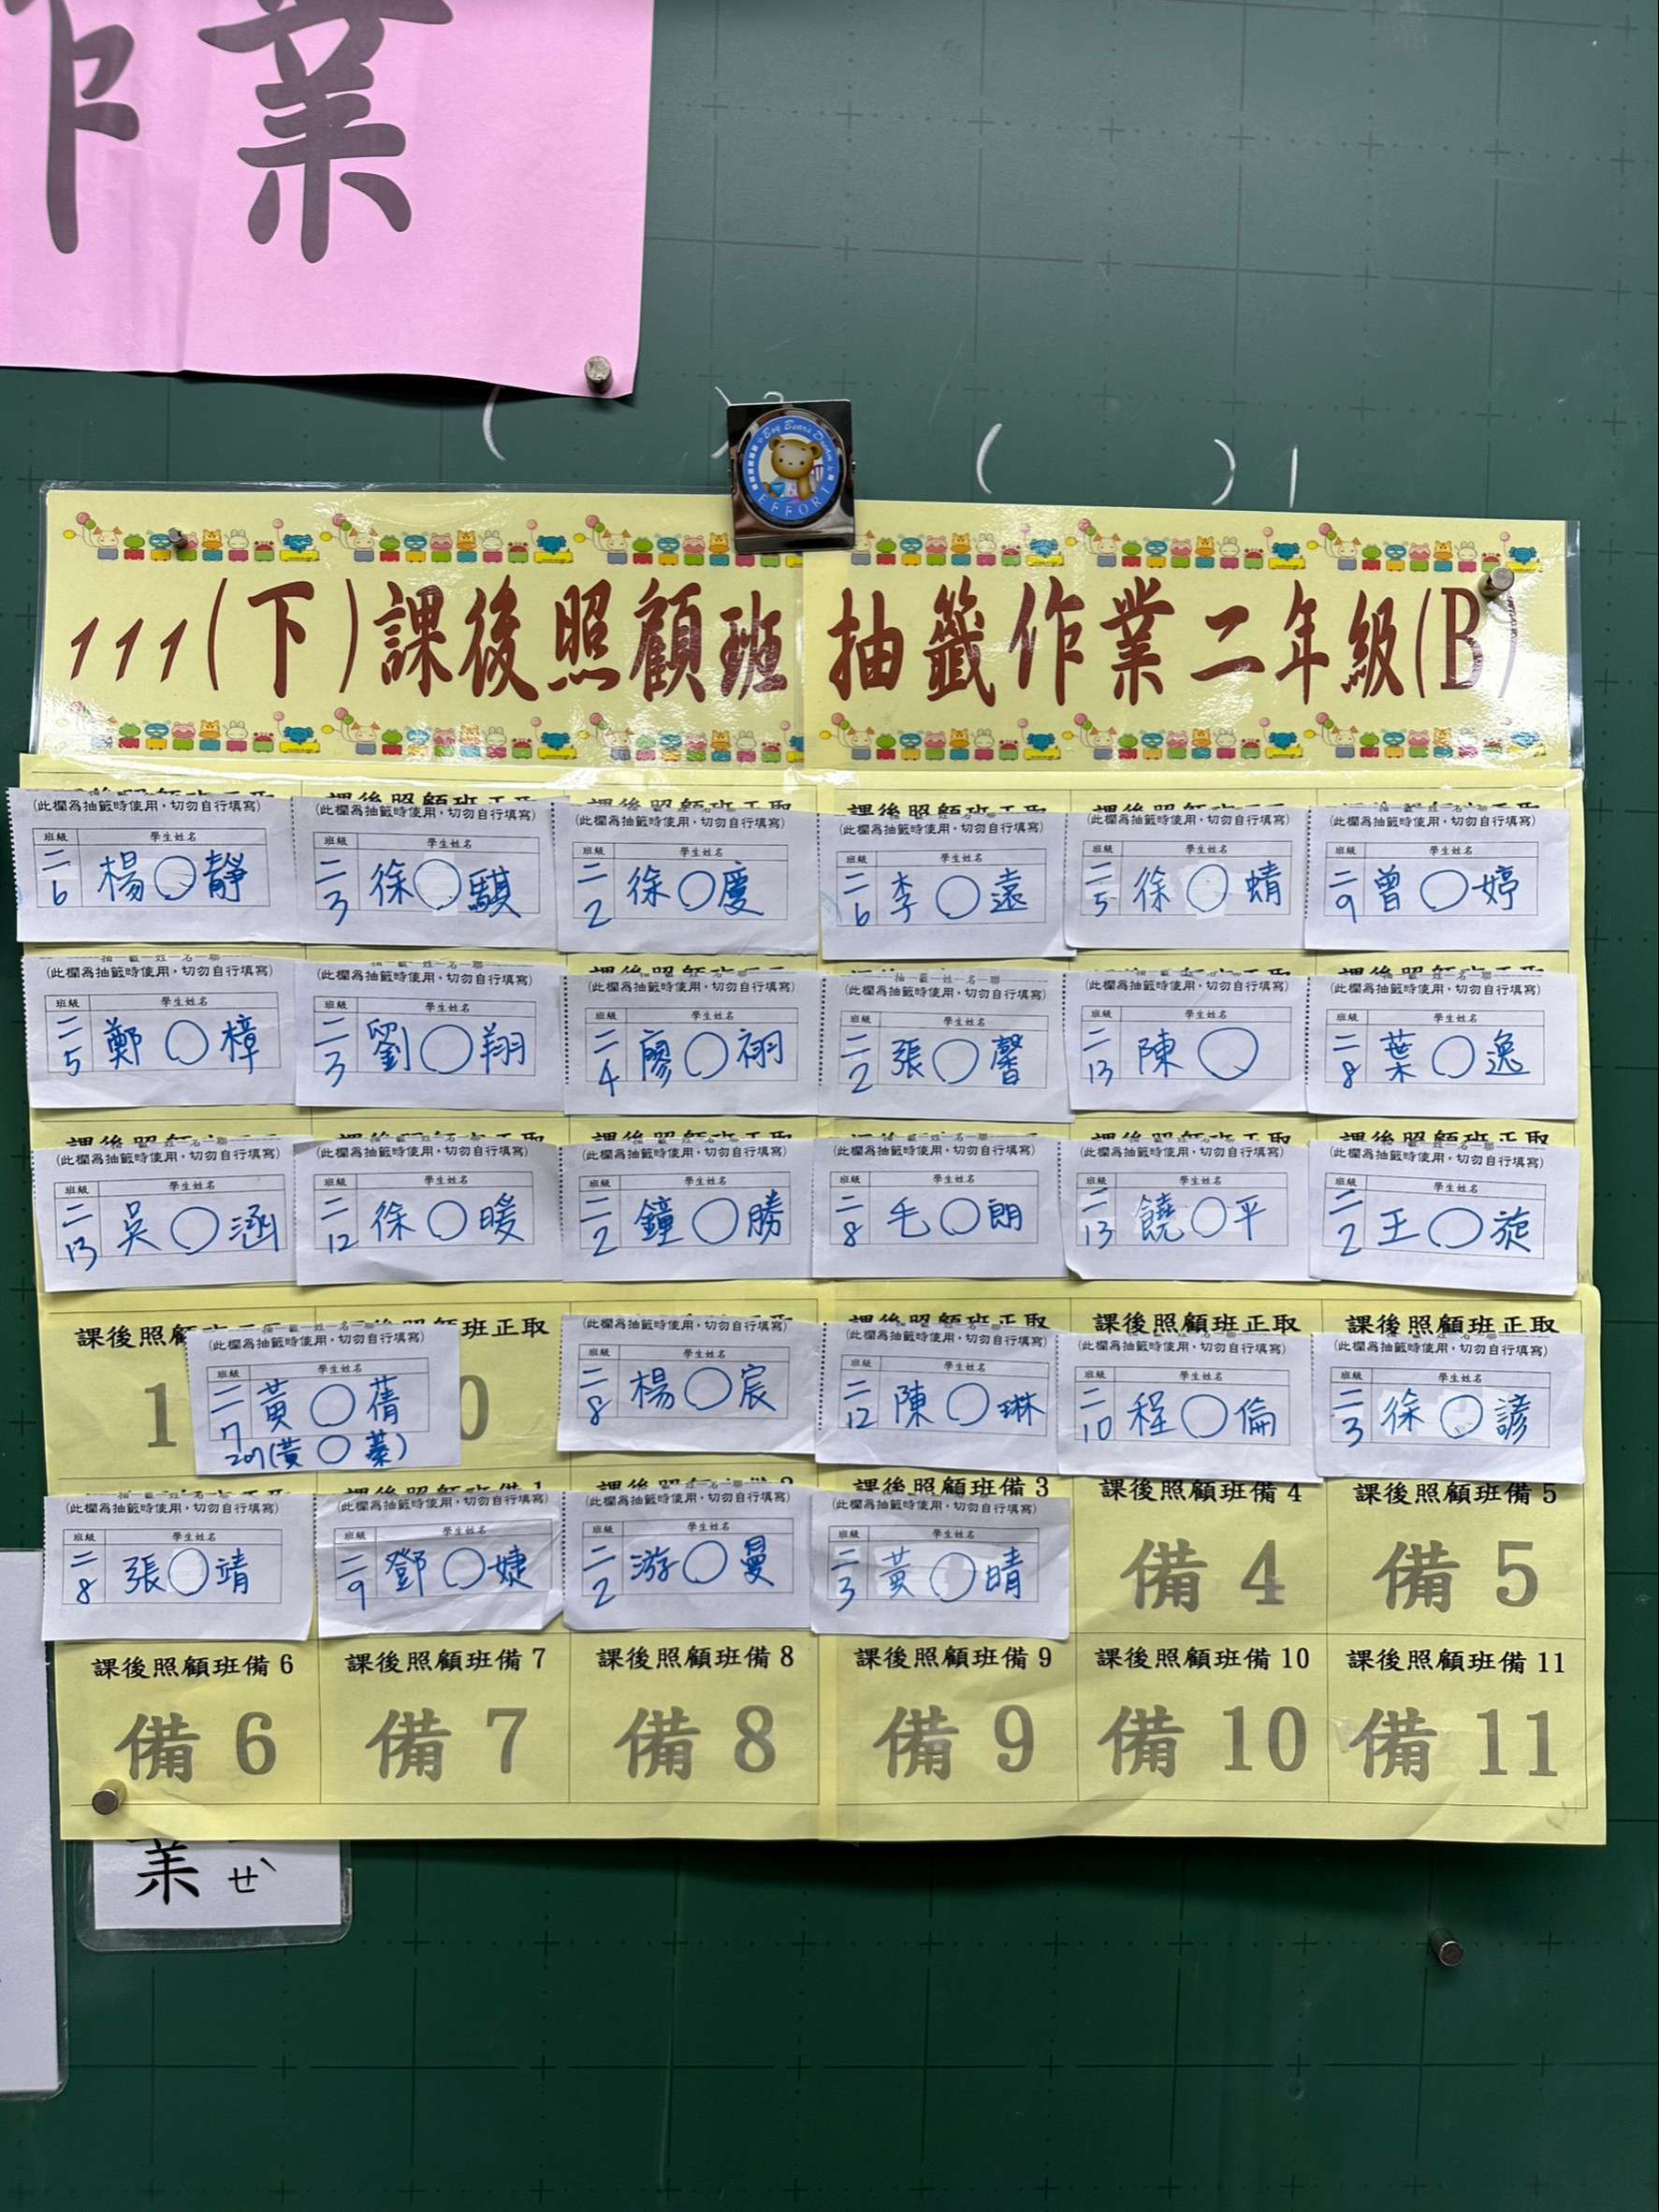 作業
Boy Bears Dream
EFFORT
111(下)課後照顧班 抽籤作業二年級(B)
(此欄為抽籤時使用,切勿自行填寫)
班級 學生姓名
二6 楊○靜
(此欄為抽籤時使用,切勿自行填寫)
班級 學生姓名
二3 徐○騏
課後照顧班正取
(此欄為抽籤時使用,切勿自行填寫)
班級 學生姓名
二2 徐○慶
課後照顧班正取
(此欄為抽籤時使用,切勿自行填寫)
班級 學生姓名
二6 李○遠
(此欄為抽籤時使用,切勿自行填寫)
班級 學生姓名
二5 徐○蜻
(此欄為抽籤時使用,切勿自行填寫)
班級 學生姓名
二9 曾○婷
(此欄為抽籤時使用,切勿自行填寫)
班級 學生姓名
二5 鄭○樟
(此欄為抽籤時使用,切勿自行填寫)
班級 學生姓名
二3 劉○翔
(此欄為抽籤時使用,切勿自行填寫)
班級 學生姓名
二4 廖○祤
(此欄為抽籤時使用,切勿自行填寫)
班級 學生姓名
二2 張○馨
(此欄為抽籤時使用,切勿自行填寫)
班級 學生姓名
二13 陳○
(此欄為抽籤時使用,切勿自行填寫)
班級 學生姓名
二8 葉○逸
(此欄為抽籤時使用,切勿自行填寫)
班級 學生姓名
二13 吳○涵
(此欄為抽籤時使用,切勿自行填寫)
班級 學生姓名
二12 徐○暖
(此欄為抽籤時使用,切勿自行填寫)
班級 學生姓名
二2 鐘○勝
(此欄為抽籤時使用,切勿自行填寫)
班級 學生姓名
二8 毛○朗
(此欄為抽籤時使用,切勿自行填寫)
班級 學生姓名
二13 饒○平
課後照顧班正取
(此欄為抽籤時使用,切勿自行填寫)
班級 學生姓名
二2 王○旋
課後照顧
班正取
1
0
(此欄為抽籤時使用,切勿自行填寫)
班級 學生姓名
二7 黃○蒨
207(黃○蓁)
(此欄為抽籤時使用,切勿自行填寫)
班級 學生姓名
二8 楊○宸
課後照顧班正取
(此欄為抽籤時使用,切勿自行填寫)
班級 學生姓名
二12 陳○琳
課後照顧班正取
(此欄為抽籤時使用,切勿自行填寫)
班級 學生姓名
二10 程○倫
課後照顧班正取
(此欄為抽籤時使用,切勿自行填寫)
班級 學生姓名
二3 徐○諺
(此欄為抽籤時使用,切勿自行填寫)
班級 學生姓名
二8 張○靖
(此欄為抽籤時使用,切勿自行填寫)
班級 學生姓名
二9 鄧○婕
(此欄為抽籤時使用,切勿自行填寫)
班級 學生姓名
二2 游○曼
課後照顧班備 3
(此欄為抽籤時使用,切勿自行填寫)
班級 學生姓名
二3 黃○晴
課後照顧班備 4
備 4
課後照顧班備 5
備 5
課後照顧班備 6
備 6
課後照顧班備 7
備 7
課後照顧班備 8
備 8
課後照顧班備 9
備 9
課後照顧班備 10
備 10
課後照顧班備 11
備 11